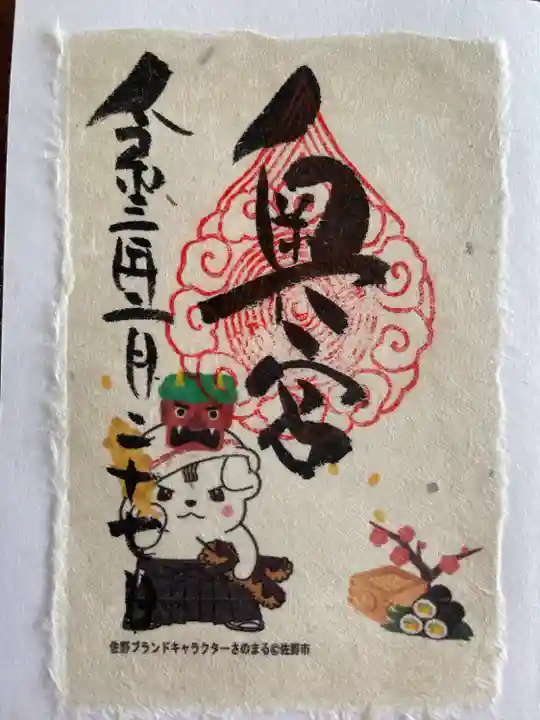 奥之宮
令和三年二月二十七日
佐野ブランドキャラクターさのまる©佐野市